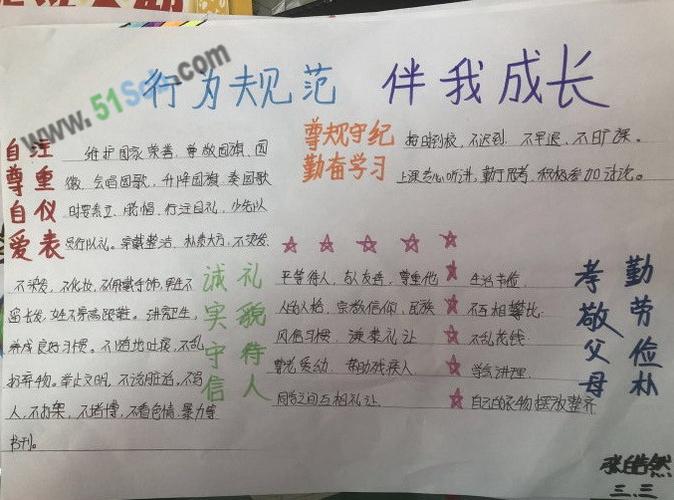 www.51Sds.com
行为规范 伴我成长
自尊自爱
注重仪表
维护国家荣誉，尊敬国旗、国
徽，会唱国歌，升降国旗、奏国歌
时要肃立、脱帽、行注目礼，少先队
员行队礼。穿戴整洁、朴素大方，不烫发，
不染发，不化妆，不佩戴首饰，男生不
留长发，女生不穿高跟鞋。讲究卫生，
养成良好习惯。不随地吐痰，不乱
扔弃物。举止文明，不说脏话，不骂
人，不打架，不赌博，不看色情、暴力等
书刊。
尊规守纪
勤奋学习
按时到校，不迟到，不早退，不旷课。
上课专心听讲，勤于思考，积极参加讨论。
诚实守信
礼貌待人
平等待人，与人友善，尊重他
人的人格、宗教信仰、民族
风俗习惯，谦恭礼让
尊老爱幼，帮助残疾人
同学之间互相礼让
生活节俭
不互相攀比
不乱花钱
学会料理
自己的衣物摆放整齐
孝敬父母
勤劳俭朴
张皓然
三.三